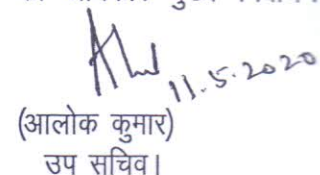 11.5.2020
(आलोक कुमार)
उप सचिव।